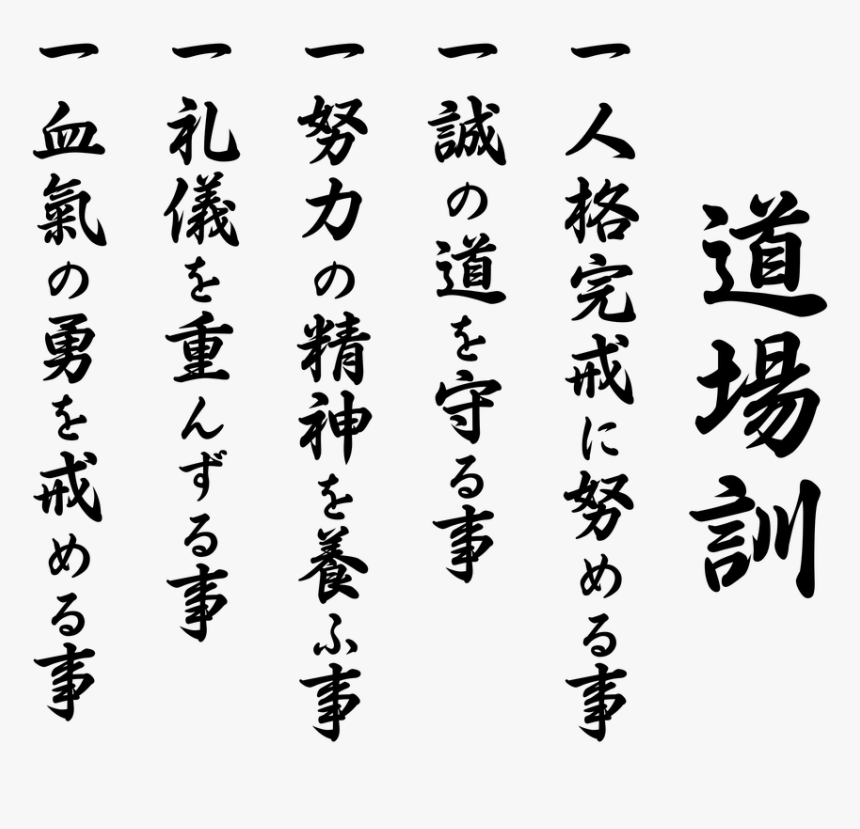 道場訓
一 人格完戒に努める事
一 誠の道を守る事
一 努力の精神を養ふ事
一 礼儀を重んずる事
一 血氣の勇を戒める事